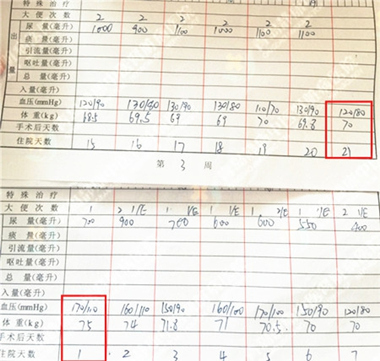 特殊治疗
大便次数 2 2 2 2 2 2
出量
尿量(毫升) 1000 900 1100 1000 1100 1100
痰量(毫升)
引流量(毫升)
呕吐量(毫升)
总量(毫升)
入量(毫升)
血压(mmHg) 120/90 130/90 130/90 130/80 110/70 130/90 120/80
体重(kg) 68.5 69.5 69 69 70 69.8 70
手术后天数
住院天数 15 16 17 18 19 20 21
第 3 周
特殊治疗
大便次数 1 2 1/E 1/E 1 1/E 1/E 2 1/E
尿量(毫升) 700 900 700 600 600 550 400
痰量(毫升)
引流量(毫升)
呕吐量(毫升)
总量(毫升)
入量(毫升)
血压(mmHg) 170/110 160/110 150/90 160/100 170/100 150/90 120/90
体重(kg) 75 74 71.8 71 70.5 70 70
手术后天数
住院天数 1 2 3 4 5 6 7